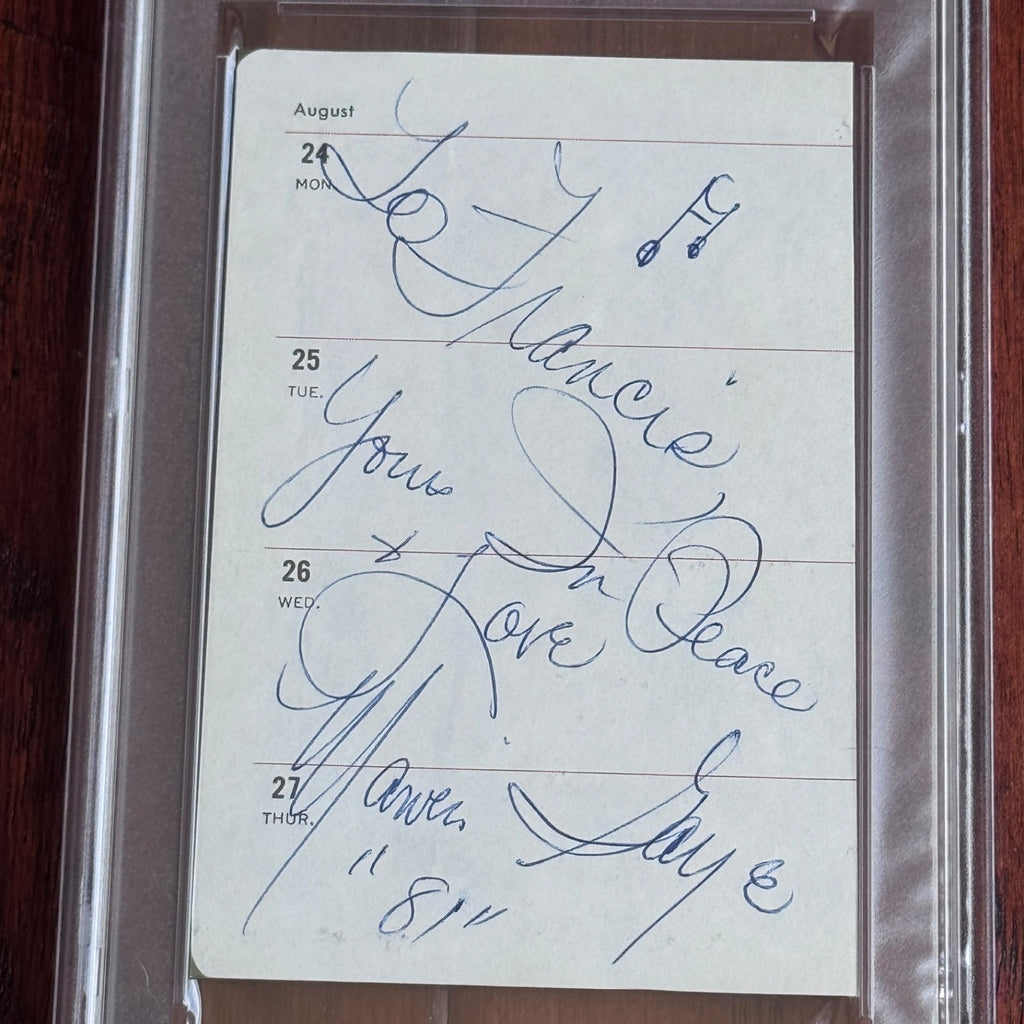 August
24
MON
To Francis
25
TUE.
Yours In Peace
26
WED.
+ Love
27
THUR.
Marvin Gaye
"81"